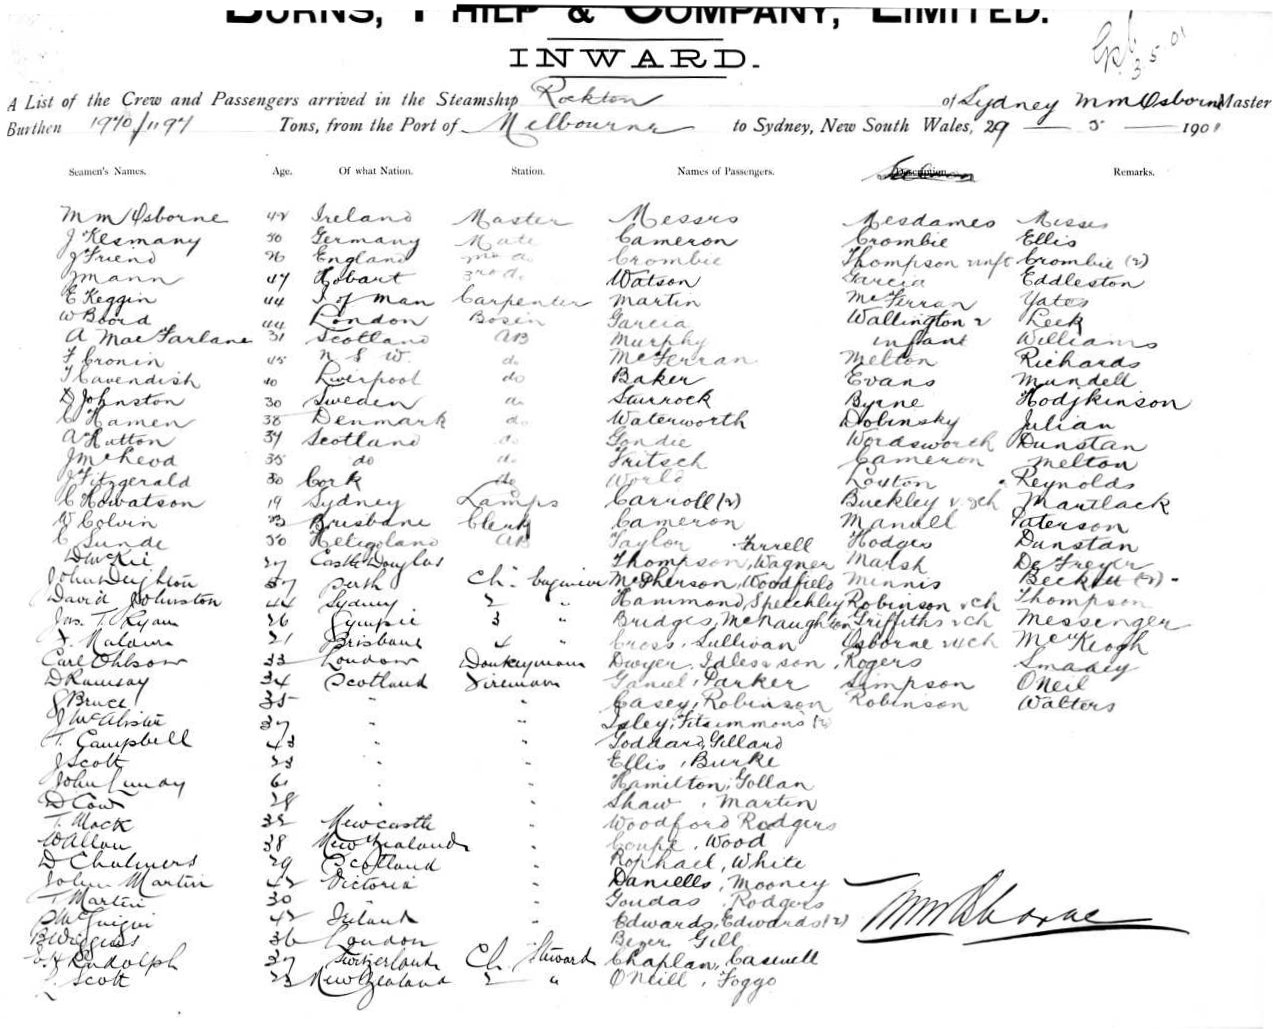 BURNS, PHILP & COMPANY, LIMITED.
INWARD.
3 5 01
A List of the Crew and Passengers arrived in the Steamship Rockton of Sydney Wm Osborne Master
Burthen 1970/1197 Tons, from the Port of Melbourne to Sydney, New South Wales, 29 — 5 — 1901
Seamen's Names. Age. Of what Nation. Station. Names of Passengers. Description. Remarks.
Wm Osborne 48 Ireland Master Messrs Mesdames Misses
J Kesmany 50 Germany Mate Cameron Crombie Ellis
J Friend 26 England 2nd do Crombie Thompson & inft Crombie (2)
J Mann 47 Hobart 3rd do Watson Garcia Eddleston
E Keggin 44 I of Man Carpenter Martin McFerran Yates
W Boord 44 London Bosin Garcia Wallington & Leek
A MacFarlane 31 Scotland AB Murphy infant Williams
F Cronin 45 N S W. do McFerran Melton Richards
T Cavendish 40 Liverpool do Baker Evans Mundell
D Johnston 30 Sweden do Surrock Byrne Hodjkinson
C Hamen 38 Denmark do Waterworth Dobinsky Julian
A Hutton 34 Scotland do Gondie Wordsworth Dunstan
J McLeod 35 do do Fritsch Cameron Melton
J Fitzgerald 30 Cork do World Loyton Reynolds
C Howatson 19 Sydney Lamps Carroll (2) Buckley & 3ch Martlack
W Colvin 23 Brisbane Clerk Cameron Manuel Paterson
C Sunde 50 Heligoland AB Taylor Ferrell Hodges Dunstan
D McKie 27 Castle Douglas Thompson, Wagner Marsh De Freyer
John Deighton 57 Perth Ch. Engineer McPherson, Woodfield Minnis Beckett (2) -
David Johnston 44 Sydney 2 " Hammond, Speechley Robinson & ch Thompson
Jas. T. Ryan 26 Gympie 3 " Bridges, McNaughton Griffiths & ch Messenger
21 Brisbane 4 " Cross, Sullivan Osborne & 4 ch McKeogh
Carl Ohlson 33 London Donkeyman Dwyer, Idless & son, Rogers Smadey
D Ramsay 34 Scotland Fireman Daniel, Parker Simpson O'Neil
J Bruce 35 " " Casey, Robinson Robinson Walters
J McAlister 37 " " Isley, Fitsimmons (2)
T. Campbell 43 " " Goddard, Gillard
J Scott 23 " " Ellis, Burke
John 61 " " Hamilton, Gollan
D Cow 28 " " Shaw, Martin
T. Mack 32 Newcastle " Woodford Rodgers
W Allan 38 New Zealand " Coupe, Wood
D Chalmers 29 Scotland " Rophael, White
John Martin 42 Victoria " Daniells, Mooney
T. Martin 30 " " Goudas, Rodgers
P McGuigin 42 Ireland " Edwards, Edwards (2)
Wm Osborne
B Wriggles 36 London " Beyer Gill
Rudolph 37 Switzerland Ch. Steward Chaplan, Caswell
Scott 23 New Zealand 2 " O'Neill, Foggo